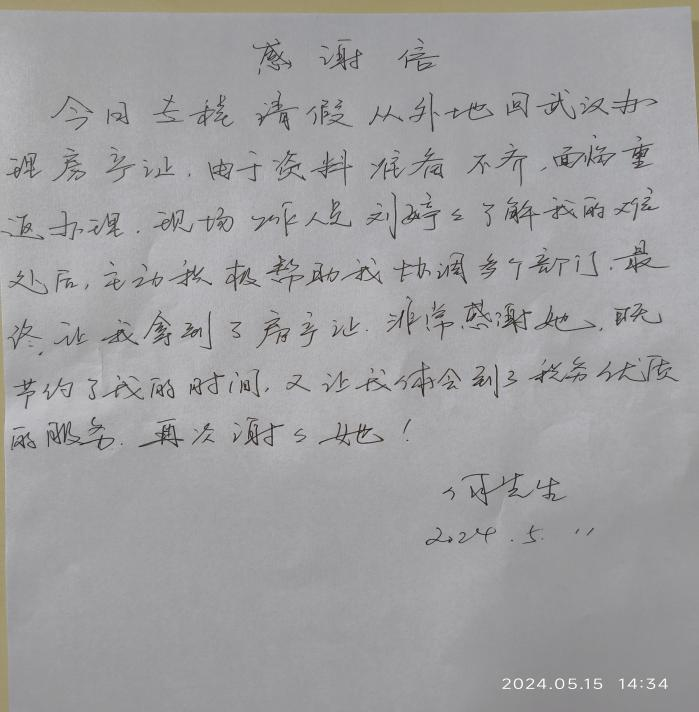 感谢信
今日专程请假从外地回武汉办
理房产证，由于资料准备不齐，面临重
返办理．现场工作人员刘婷々了解我的难
处后，主动积极帮助我协调多个部门．最
终，让我拿到了房产证．非常感谢她，既
节约了我的时间，又让我体会到了税务优质
的服务．再次谢々她！
何先生
2024.5.11
2024.05.15 14:34